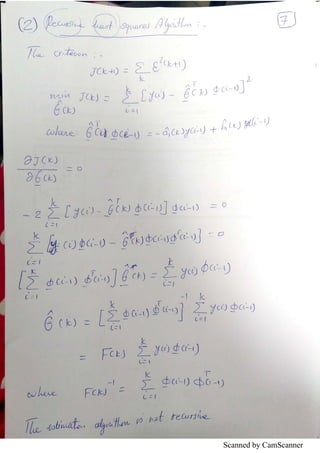 (2) Recursive least squares Algorithm :-
7
The criterion :-
J(k+1) = Σ_k ε²(k+1)
min_{θ̂(k)} J(k) = Σ_{i=1}^{k} [y(i) - θ̂ᵀ(k) φ(i-1)]²
where θ̂ᵀ(k) φ(i-1) = -â₁(k) y(i-1) + b̂₁(k) u(i-1)
∂J(k)/∂θ̂(k) = 0
-2 Σ_{i=1}^{k} [y(i) - θ̂ᵀ(k) φ(i-1)] φ(i-1) = 0
Σ_{i=1}^{k} [y(i) φ(i-1) - θ̂(k) φ(i-1) φᵀ(i-1)] = 0
[Σ_{i=1}^{k} φ(i-1) φᵀ(i-1)] θ̂(k) = Σ_{i=1}^{k} y(i) φ(i-1)
θ̂(k) = [Σ_{i=1}^{k} φ(i-1) φᵀ(i-1)]⁻¹ Σ_{i=1}^{k} y(i) φ(i-1)
= F(k) Σ_{i=1}^{k} y(i) φ(i-1)
where F(k)⁻¹ = Σ_{i=1}^{k} φ(i-1) φᵀ(i-1)
The estimation algorithm is not recursive
Scanned by CamScanner